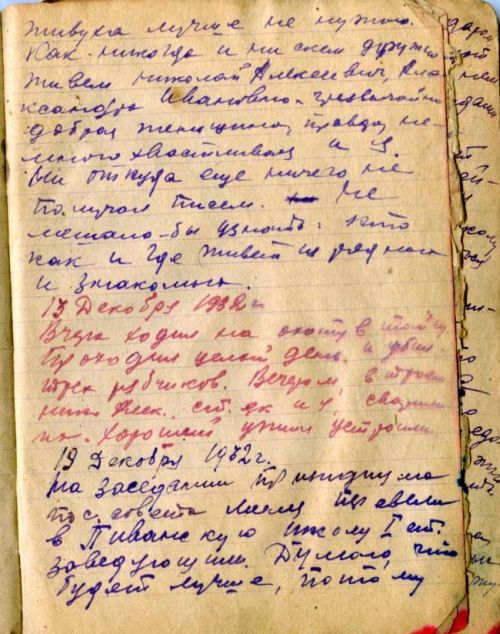 живука лучше не нужно.
Как никогда и ни с кем дружно
живем Николай Алексеевич, Але
ксандра Ивановна - чрезвычайно
добрая женщина, правда, не-
много хвастливая и я.
Ни откуда еще ничего не
получал писем. Не
мешало-бы узнать: кто
как и где живет из родных
и знакомых.
13 Декабря 1932 г.
Вчера ходил на охоту в тайгу
Проходил целый день и убил
трех рябчиков. Вечером, в троем
Ник. Алек., и я, сварили
их. Хороший ужин устроили.
19 Декабря 1932 г.
На заседании президиума
пос. совета меня перевели
в Пиванскую школу I ст.
заведующим. Думаю, что
будет лучше, потому